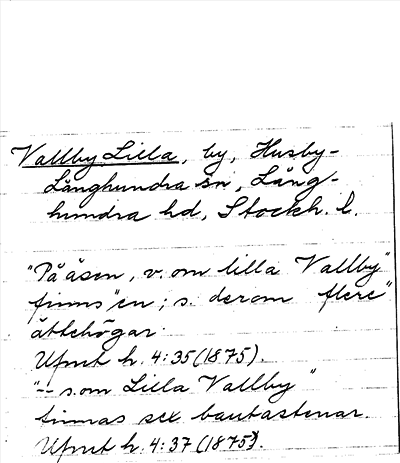 Vallby, Lilla, by, Husby-
Långhundra sn, Lång-
hundra hd, Stockh. l.
"På åsen, v. om lilla Vallby"
finns "en; s. derom flere"
ättehögar.
Upmt h. 4:35 (1875).
"-- s.om Lilla Vallby"
finnas sex bautastenar.
Upmt h. 4:37 (1875).